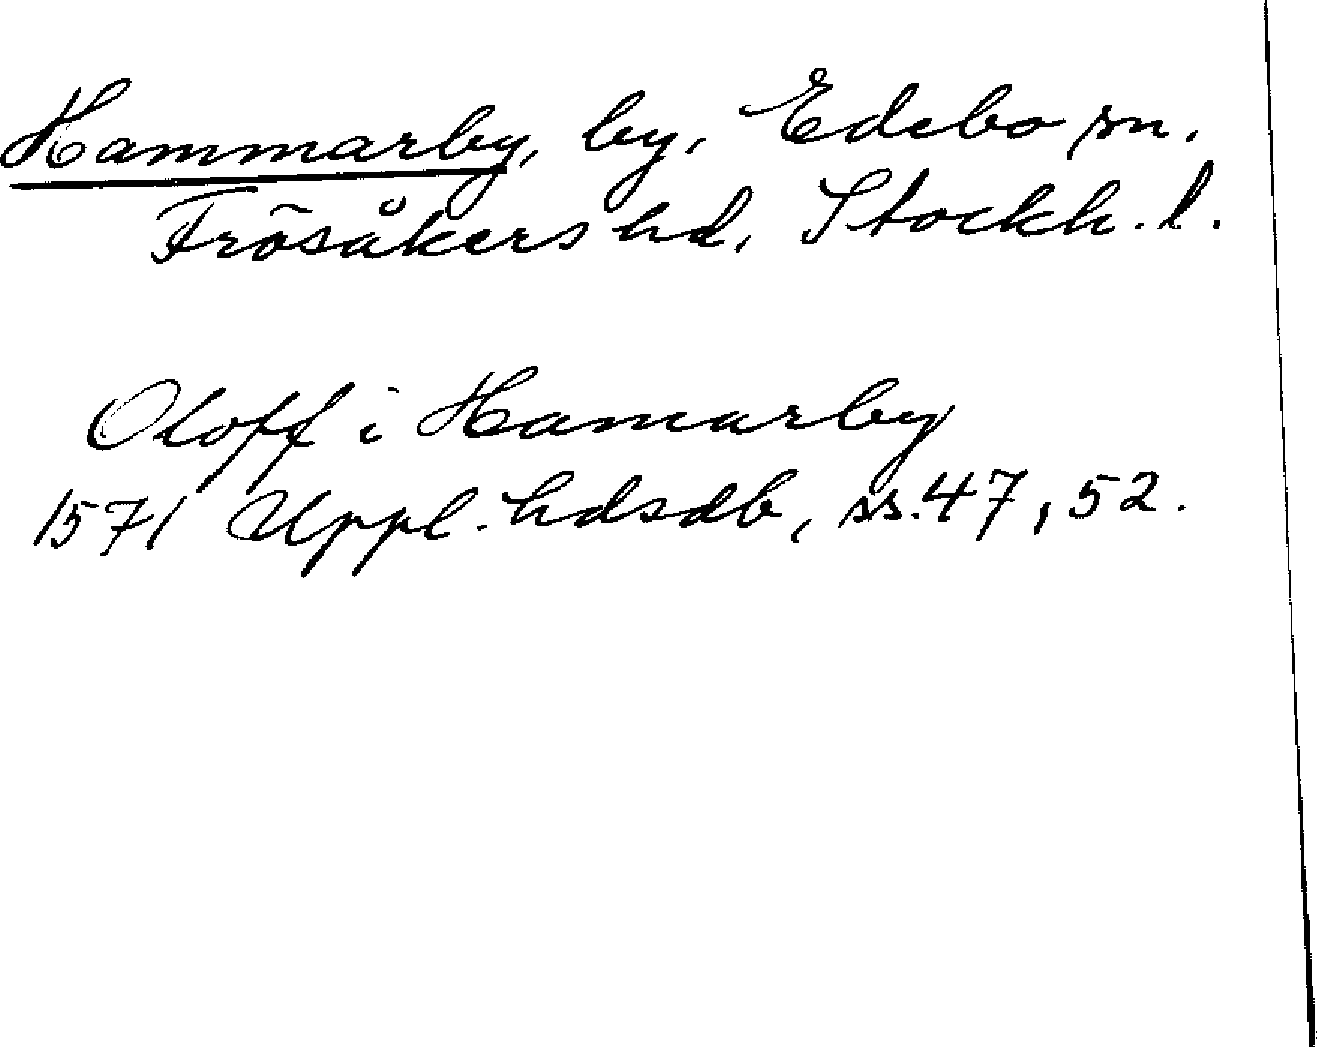 Hammarby, by, Edebo sn.
Frösåkers hd, Stockh. l.
Oloff i Hamarby
1571 Uppl. hdsdb, ss. 47, 52.